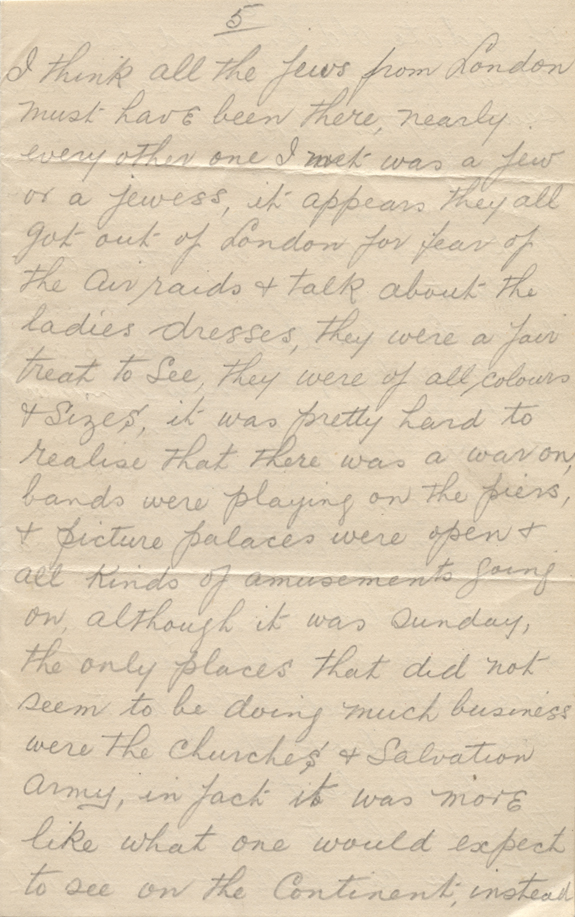 5
I think all the Jews from London
must have been there, nearly
every other one I met was a Jew
or a jewess, it appears they all
got out of London for fear of
the Air raids & talk about the
ladies dresses, they were a fair
treat to See, they were of all colours
& Sizes, it was pretty hard to
realise that there was a war on,
bands were playing on the piers,
& picture palaces were open &
all kinds of amusements going
on, although it was Sunday,
the only places that did not
seem to be doing much business
were the Churches & Salvation
Army, in fact it was more
like what one would expect
to see on the Continent, instead